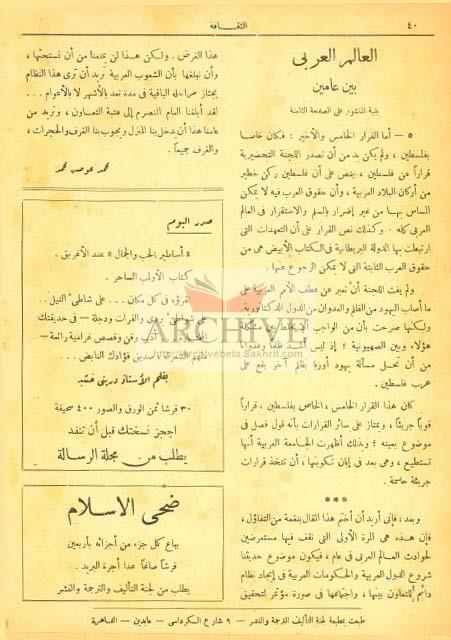 ٤٠
الثقافة
العالم العربي
بين عامين
بقية المنشور على الصفحة الثامنة
٥ — أما القرار الخامس والأخير : فكان خاصا
بفلسطين ، ولم يكن بد من أن تصدر اللجنة التحضيرية
قراراً عن فلسطين ، ينص على أن فلسطين ركن خطير
من أركان البلاد العربية ، وأن حقوق العرب فيه لا يمكن
المساس بها من غير إضرار بالسلم والاستقرار في العالم
العربي كله . وكذلك نص القرار على أن التعهدات التي
ارتبطت بها الدولة البريطانية في الكتاب الأبيض هي من
حقوق العرب الثابتة التي لا يمكن الرجوع عنها .
ولم يفت اللجنة أن تعبر عن عطف الأمم العربية على
ما أصاب اليهود من الظلم والعدوان من الدول الدكتاتورية .
ولكنها صرحت بأن من الواجب ألا يخلط بين مشكلة
هؤلاء وبين الصهيونية ؛ إذ ليس أشد ظلماً وعدواناً
من أن تحل مسألة يهود أوربا بظلم آخر يقع على
عرب فلسطين .
كان هذا القرار الخامس ، الخاص بفلسطين ، قراراً
قوياً جريئاً ، ويمتاز على سائر القرارات بأنه قول فصل في
موضوع بعينه ؛ وبذلك أظهرت الجامعة العربية أنها
تستطيع ، وهي بعد في إبان تكوينها ، أن تتخذ قرارات
جريئة حاسمة .
***
وبعد ، فإني أريد أن أختم هذا المقال بنغمة من التفاؤل ،
فإن هذه هي المرة الأولى التي نقف فيها مستعرضين
لحوادث العالم العربي في عام ، فيكون موضوع حديثنا
شروع الدول العربية والحكومات العربية في إيجاد نظام
دائم للتعاون بينها ، واجتماعها في صورة مؤتمر لتحقيق
هذا الغرض . ولكن هذا لن يمنعنا من أن نستحثها ،
وأن نبلغها بأن الشعوب العربية تريد أن ترى هذا النظام
يجتاز مراحله الباقية في مدة تعد بالأشهر لا بالأعوام ...
لقد أبلغنا العام المنصرم إلى عتبة التعاون ، ونريد من
عامنا هذا أن يدخل بنا المنزل ويجوب بنا الغرف والحجرات ،
والغرف جميعاً .
محمد عوض محمد
صدر اليوم
« أساطير الحب والجمال » عند الأغريق .
كتاب الأولمب الساحر .
تقرؤه في كل مكان ... على شاطىء النيل ..
على شواطىء بردى والفرات ودجلة — في حديقتك
أدب وفن وقصص غرامية رائعة —
صديق فؤادك النابض ...
بقلم الأستاذ دريني خشبة
٣٠ قرشا ثمن الورق والصور ٤٠٠ صحيفة
احجز نسختك قبل أن تنفد
يطلب من مجلة الرسالة
ضحى الاسلام
يباع كل جزء من أجزائه بأربعين
قرشا صاغا عدا أجرة البريد .
يطلب من لجنة التأليف والترجمة والنشر
طبعت بمطبعة لجنة التأليف والترجمة والنشر — ٩ شارع الكرداسي — عابدين — القاهرة
ARCHIVE
http://Archivebeta.Sakhrit.com